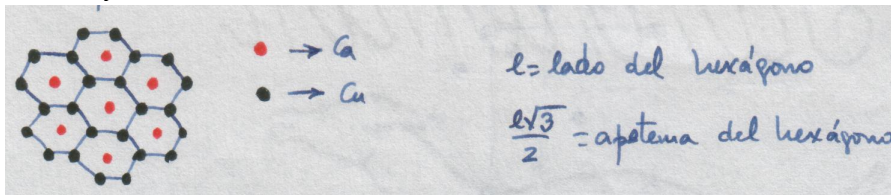 → Ca
→ Cu
l = lado del hexágono
l√3/2 = apotema del hexágono